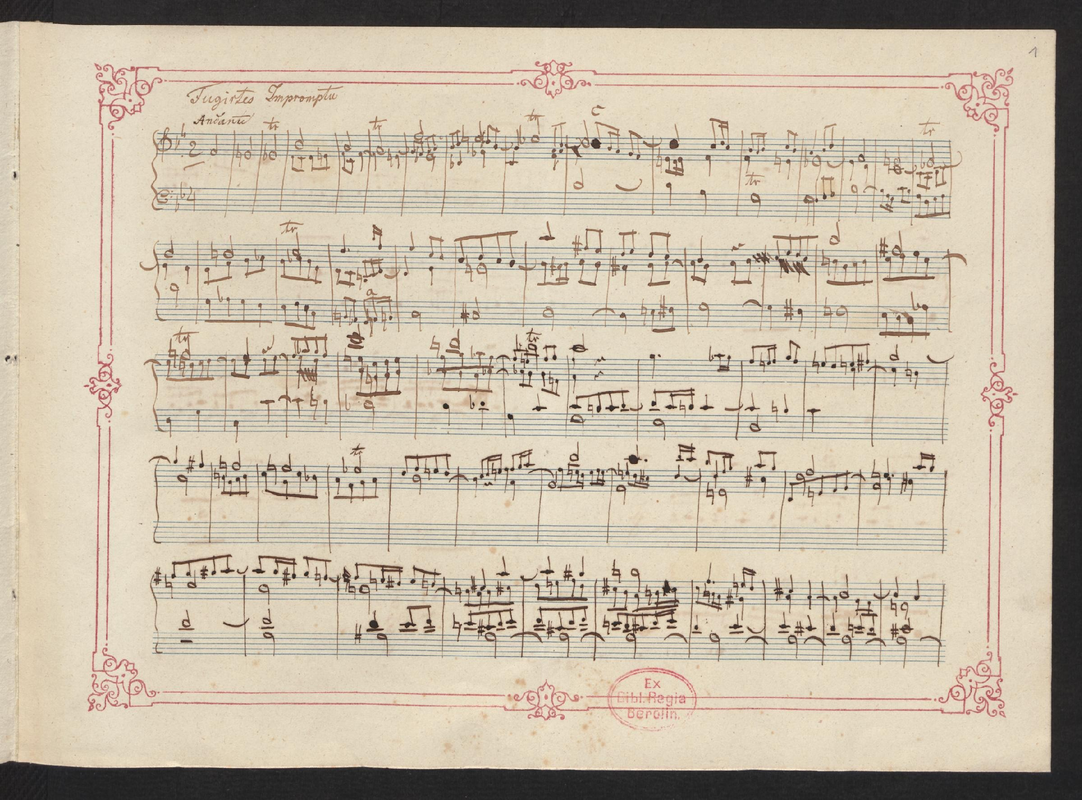 1
Fugirtes Impromptu
tr
tr
tr
C
tr
2
tr
tr
a
tr
tr
tr
Ex
Bibl. Regia
Berolin.